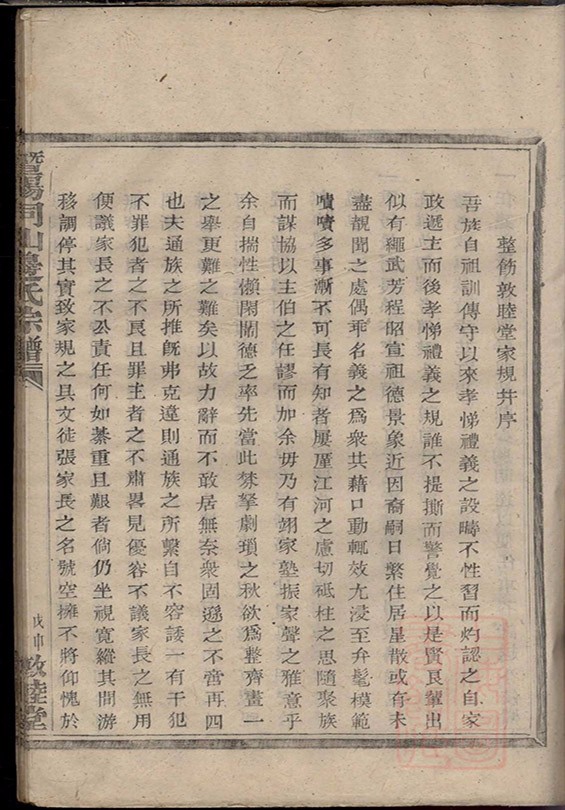 整飭敦睦堂家規幷序
吾族自祖訓傳守以來孝悌禮義之設疇不性習而灼認之自家
政遞主而後孝悌禮義之規誰不提撕而警覺之以是賢良輩出
似有繩武芳程昭宣祖德景象近因裔嗣日繁住居星散或有未
盡靚聞之處偶乖名義之爲衆共藉口動輒效尤浸至弁髦模範
嘖嘖多事漸不可長有知者屢厪江河之慮切砥柱之思隨聚族
而謀協以主伯之任謬而加余毋乃有翊家塾振家聲之雅意乎
余自揣性懶閑閑德乏率先當此棼拏劇瑣之秋欲爲整齊畫一
之舉更難之難矣以故力辭而不敢居無奈衆固遜之不啻再四
也夫通族之所推旣弗克違則通族之所繫自不容諉一有干犯
不罪犯者之不良且罪主者之不肅畧見優容不議家長之無用
便議家長之不公責任何如綦重且艱者倘仍坐視寬縱其間游
移調停其實致家規之具文徒張家長之名號空擁不將仰愧於
暨陽同山邊氏宗譜
戊申
敦睦堂